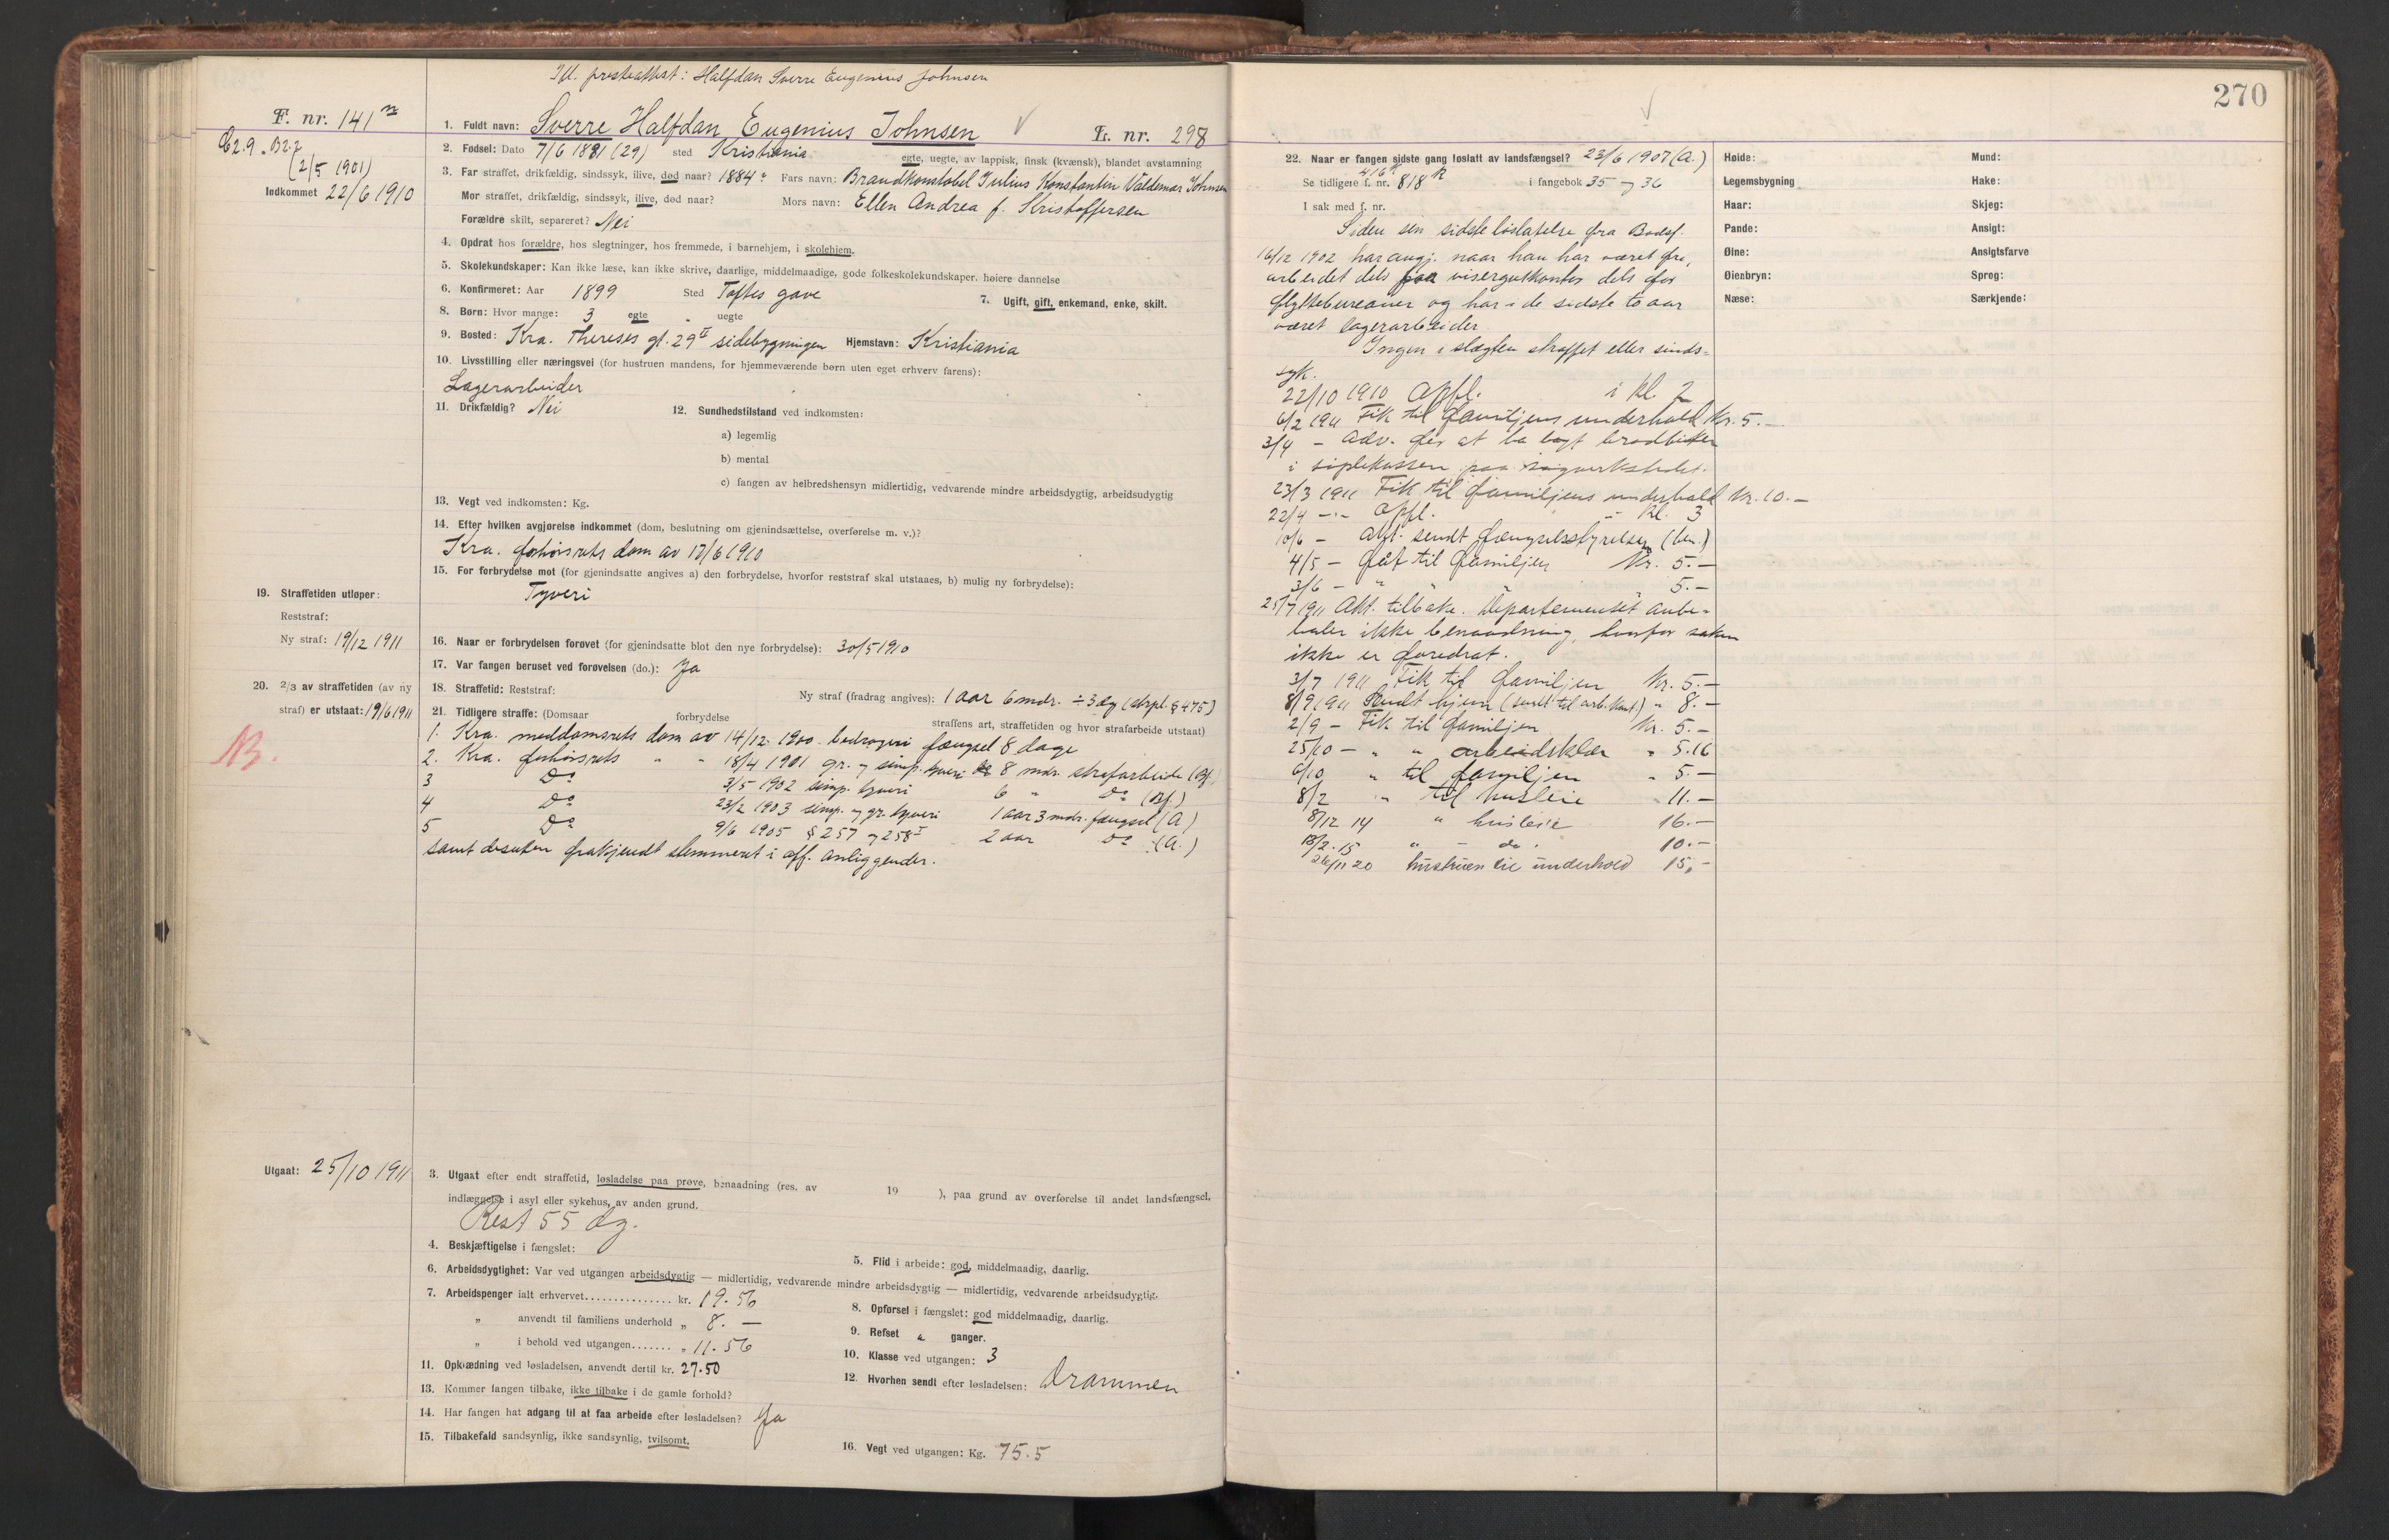 Ifl. presteattest: Halfdan Sverre Eugenius Johnsen
F. nr. 141
C 2.9. B 2.7
(2/5 1901)
Indkommet 22/6 1910
1. Fuldt navn: Sverre Halfdan Eugenius Johnsen L. nr. 298
2. Fødsel: Dato 7/6 1881 (29) sted Kristiania egte, uegte, av lappisk, finsk (kvænsk), blandet avstamning
3. Far straffet, drikfældig, sindssyk, ilive, død naar? 1884? Fars navn: Brandkonstobel Julius Konstantin Valdemar Johnsen
Mor straffet, drikfældig, sindssyk, ilive, død naar? Mors navn: Ellen Andrea f. Kristoffersen
Forældre skilt, separeret? Nei
4. Opdrat hos forældre, hos slegtninger, hos fremmede, i barnehjem, i skolehjem.
5. Skolekundskaper: Kan ikke læse, kan ikke skrive, daarlige, middelmaadige, gode folkeskolekundskaper. høiere dannelse
6. Konfirmeret: Aar 1899 Sted Toftes gave
7. Ugift, gift, enkemand, enke, skilt.
8. Børn: Hvor mange: 3 egte " uegte
9. Bosted: Kra. Thereses gt. 29 II sidebygningen Hjemstavn: Kristiania
10. Livsstilling eller næringsvei (for hustruen mandens, for hjemmeværende børn uten eget erhverv farens):
Lagerarbeider
11. Drikfældig? Nei 12. Sundhedstilstand ved indkomsten:
a) legemlig
b) mental
c) fangen av helbredshensyn midlertidig, vedvarende mindre arbeidsdygtig, arbeidsudygtig
13. Vegt ved indkomsten: Kg.
14. Efter hvilken avgjørelse indkommet (dom, beslutning om gjenindsættelse, overførelse m. v.)?
Kra. forhørsrets dom av 17/6 1910
15. For forbrydelse mot (for gjenindsatte angives a) den forbrydelse, hvorfor reststraf skal utstaaes, b) mulig ny forbrydelse):
Tyveri
19. Straffetiden utløper:
Reststraf:
Ny straf: 19/12 1911
16. Naar er forbrydelsen forøvet (for gjenindsatte blot den nye forbrydelse): 30/5 1910
17. Var fangen beruset ved forøvelsen (do.): Ja
20. 2/3 av straffetiden (av ny
straf) er utstaat: 19/6 1911
18. Straffetid: Reststraf: Ny straf (fradrag angives): 1 aar 6 mdr. ÷ 3 dg (strpl. § 475)
21. Tidligere straffe: (Domsaar forbrydelse straffens art, straffetiden og hvor strafarbeide utstaat)
1. Kra. meddomsrets dom av 14/12 1900. bedrageri fængsel 8 dage
2. Kra. forhørsrets " " 18/4 1901 gr. og simp. tyveri 8 mdr. strafarbeide (Bf.)
3 Do 3/5 1902 simp. tyveri 6 " Do (Bf.)
4 Do 23/2 1903 simp. og gr. tyveri 1 aar 3 mdr. fængsel (A)
5 Do 9/6 1905 § 257 og 258 I 2 aar Do (A.)
samt desuten frakjendt stemmeret i off. anliggender.
NB.
Utgaat: 25/10 1911
3. Utgaat efter endt straffetid, løsladelse paa prøve, benaadning (res. av 19 ), paa grund av overførelse til andet landsfængsel,
indlæggelse i asyl eller sykehus, av anden grund.
Rest 55 dg.
4. Beskjæftigelse i fængslet:
5. Flid i arbeide: god, middelmaadig, daarlig.
6. Arbeidsdygtighet: Var ved utgangen arbeidsdygtig — midlertidig, vedvarende mindre arbeidsdygtig — midlertidig, vedvarende arbeidsudygtig.
7. Arbeidspenger ialt erhvervet............... kr. 19.56
8. Opførsel i fængslet: god middelmaadig, daarlig.
„ anvendt til familiens underhold „ 8. —
9. Refset " ganger.
„ i behold ved utgangen....... „ 11.56
10. Klasse ved utgangen: 3
11. Opklædning ved løsladelsen, anvendt dertil kr. 27.50
12. Hvorhen sendt efter løsladelsen: Drammen
13. Kommer fangen tilbake, ikke tilbake i de gamle forhold?
14. Har fangen hat adgang til at faa arbeide efter løsladelsen? Ja
15. Tilbakefald sandsynlig, ikke sandsynlig, tvilsomt.
16. Vegt ved utgangen: Kg. 75.5
270
22. Naar er fangen sidste gang løslatt av landsfængsel? 23/6 1907 (A.)
416
Se tidligere f. nr. 818 i fangebok 35 og 36
I sak med f. nr.
Siden sin sidste løslatelse fra Bodsf.
16/12 1902 har angj. naar han har været fri,
arbeidet dels paa visergutkontor dels for
flyttebureauer og har i de sidste to aar
været lagerarbeider.
Ingen i slægten straffet eller sinds-
syk.
22/10 1910 Opfl. i kl. 2
6/2 1911 Fik til familjens underhold Kr. 5.—
3/4 — Adv. for at ha lagt brødbiter
i søplekassen paa
23/3 1911 Fik til familjens underhold Kr. 10.—
22/4 — Opfl. " kl. 3
10/6 — Akt. sendt fængselsstyrelsen (ben.)
4/5 — Fåt til familjen Kr. 5.—
3/6 — " " 5.—
25/7 1911 Akt. tilbake. Departementet anbe-
faler ikke benaadning, hvorfor saken
ikke er foredrat.
3/7 1911 Fik til familjen Kr. 5.—
8/9 1911 Sendt hjem (sendt til arb.kont.) " 8.—
2/9 — Fik til familjen Kr. 5.—
25/10 — " " arbeidsklær " 5.16
6/10 " til familjen " 5.—
8/2 " til husleie " 11.—
8/12 14 " husleie 16.—
18/2.15 " — do. 10.—
26/11 20 hustruen til underhold 15,—
Høide:
Legemsbygning
Haar:
Pande:
Øine:
Øienbryn:
Næse:
Mund:
Hake:
Skjeg:
Ansigt:
Ansigtsfarve
Sprog:
Særkjende: